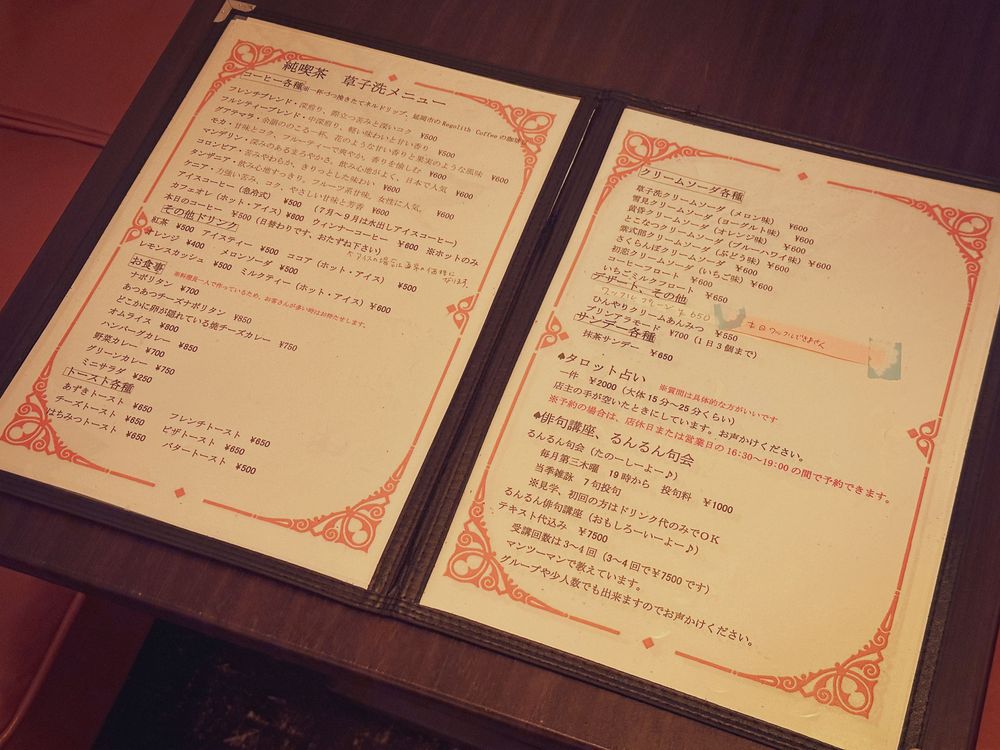 純喫茶 草子洗メニュー
コーヒー各種※一杯づつ挽きたてネルドリップ、延岡市のRegolith Coffeeの珈琲
フレンチブレンド・深煎り、際立つ苦みと深いコク ¥500
フルシティーブレンド・中深煎り、軽い味わいと甘い香り ¥500
グアテマラ・余韻ののこる一杯、花のような甘い香りと果実のような風味 ¥600
モカ・甘味とコク、フルーティーで爽やか、香りを愉しむ ¥600
マンデリン・深みのあるまろやかさ、飲み心地がよく、日本で人気 ¥600
コロンビア・苦みやわらか、きりっとした味わい ¥600
タンザニア・飲み心地すっきり、フルーツ系甘味。女性に人気。 ¥600
ケニア・力強い苦み、コク、やさしい甘味と芳香 ¥600
アイスコーヒー（急冷式） ¥500 （7月～9月は水出しアイスコーヒー）
カフェオレ（ホット・アイス）¥600 ウィンナーコーヒー ¥600 ※ホットのみ
本日のコーヒー ¥500（日替わりです、おたずね下さい）
その他ドリンク
紅茶 ¥500 アイスティー ¥500 ココア（ホット・アイス） ¥500
オレンジ ¥400 メロンソーダ ¥500
レモンスカッシュ ¥500 ミルクティー（ホット・アイス）¥600
お食事
※料理長一人で作っているため、お客さんが多い時はお待たせします。
ナポリタン ¥700
あつあつチーズナポリタン ¥850
どこかに卵が隠れている焼チーズカレー ¥750
オムライス ¥800
ハンバーグカレー ¥850
野菜カレー ¥700
グリーンカレー ¥750
ミニサラダ ¥250
トースト各種
あずきトースト ¥650 フレンチトースト ¥650
チーズトースト ¥650 ピザトースト ¥650
はちみつトースト ¥650 バタートースト ¥500
クリームソーダ各種
草子洗クリームソーダ（メロン味） ¥600
雪見クリームソーダ（ヨーグルト味） ¥600
黄昏クリームソーダ（オレンジ味） ¥600
とこなつクリームソーダ（ブルーハワイ味）¥600
紫式部クリームソーダ（ぶどう味）¥600
さくらんぼクリームソーダ ¥600
初恋クリームソーダ（いちご味）¥600
コーヒーフロート ¥600
いちごミルクフロート ¥650
デザート、その他
ワッフルプレーン ¥650
ひんやりクリームあんみつ ¥550
プリンアラモード ¥700（1日3個まで）
サンデー各種
抹茶サンデー ¥650
♠タロット占い ※質問は具体的な方がいいです
一件 ¥2000（大体15分～25分くらい）
店主の手が空いたときにしています。お声かけください。
※予約の場合は、店休日または営業日の16:30～19:00の間で予約できます。
♠俳句講座、るんるん句会
るんるん句会（たのーしーよー♪）
毎月第三木曜 19時から 投句料 ¥1000
当季雑詠 7句投句
※見学、初回の方はドリンク代のみでOK
るんるん俳句講座（おもしろーいーよー♪）
テキスト代込み ¥7500
受講回数は3～4回（3～4回で¥7500です）
マンツーマンで教えています。
グループや少人数でも出来ますのでお声かけください。